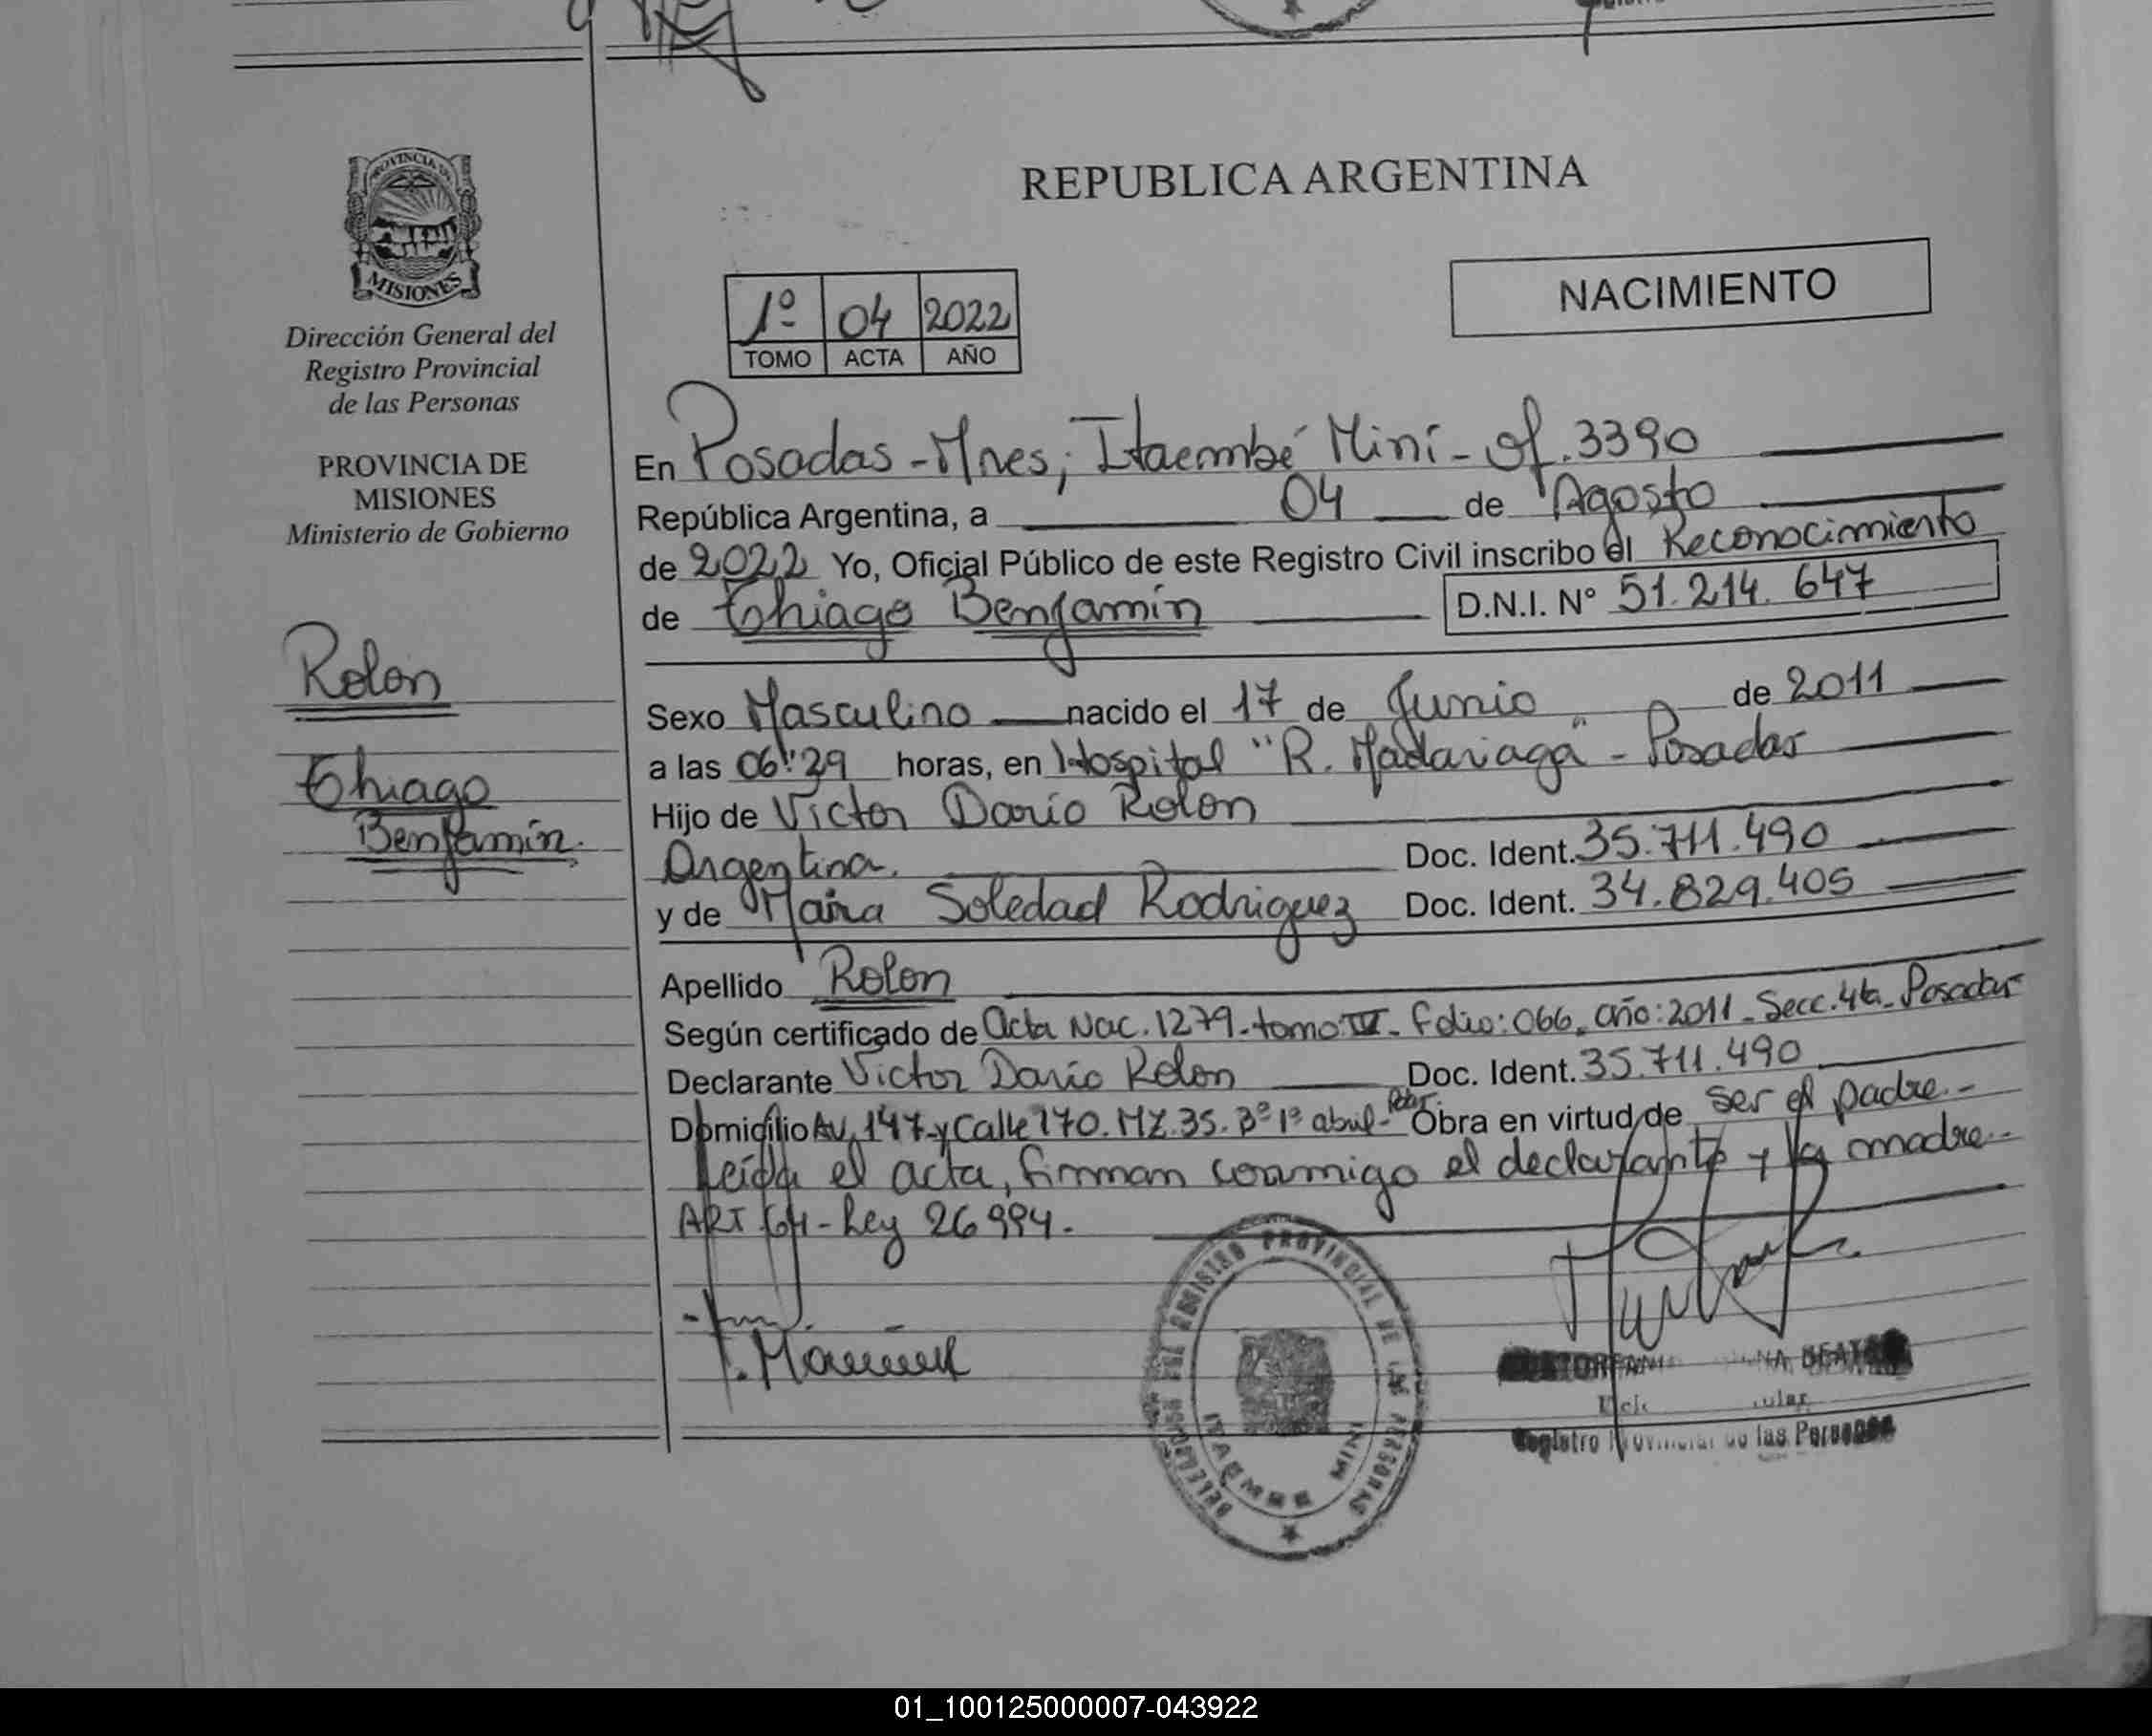 PROVINCIA DE
MISIONES
Dirección General del
Registro Provincial
de las Personas
PROVINCIA DE
MISIONES
Ministerio de Gobierno
Rolon
Thiago
Benjamín.
REPUBLICA ARGENTINA
NACIMIENTO
1º 04 2022
TOMO ACTA AÑO
En Posadas - Mnes; Itaembé Miní - of. 3390
República Argentina, a 04 de Agosto
de 2022 Yo, Oficial Público de este Registro Civil inscribo el Reconocimiento
de Thiago Benjamín D.N.I. Nº 51.214.647
Sexo Masculino nacido el 17 de Junio de 2011
a las 06:29 horas, en Hospital "R. Madariaga" - Posadas
Hijo de Victor Dario Rolon
Argentina. Doc. Ident. 35.711.490
y de Soledad Rodriguez Doc. Ident. 34.829.405
Apellido Rolon
Según certificado de Acta Nac. 1279 - tomo IV - Folio: 066 - año: 2011 - Secc. 4ta - Posadas
Declarante Victor Dario Rolon Doc. Ident. 35.711.490
Domicilio Av. 147 y Calle 170. MZ. 35. Bº 1º abril - Pdas. Obra en virtud de ser el padre.-
Leída el acta, firman conmigo el declarante y la madre.-
ART 64 - Ley 26994.
REGISTRO PROVINCIAL DE LAS PERSONAS
ITAEMBE MINI
Registro Provincial de las Personas
01_100125000007-043922